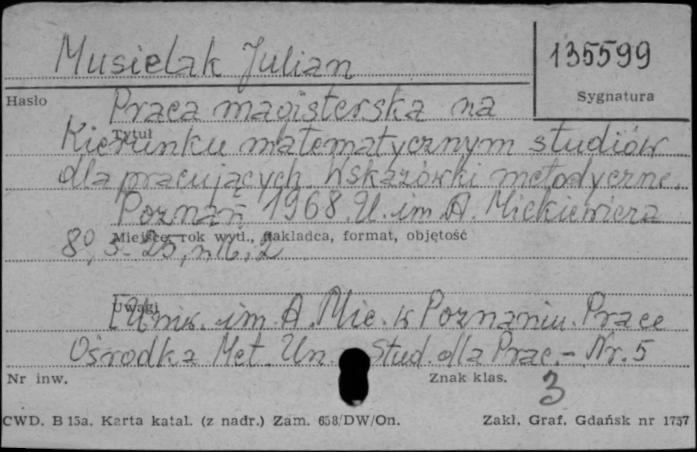 Musielak Julian
135599
Hasło
Sygnatura
Praca magisterska na
Tytuł
Kierunku matematycznym studiów
dla pracujących. Wskazówki metodyczne.
Poznań 1968. U. im. A. Mickiewicza
Miejsce, rok wyd., nakładca, format, objętość
8°, s. 25, nlb. 2
Uwagi
[Uniw. im. A. Mic. w Poznaniu. Prace
Ośrodka Met. Un. Stud. dla Prac. - Nr. 5
Nr inw.
Znak klas.
3
CWD. B 15a. Karta katal. (z nadr.) Zam. 658/DW/On.
Zakł. Graf. Gdańsk nr 1737